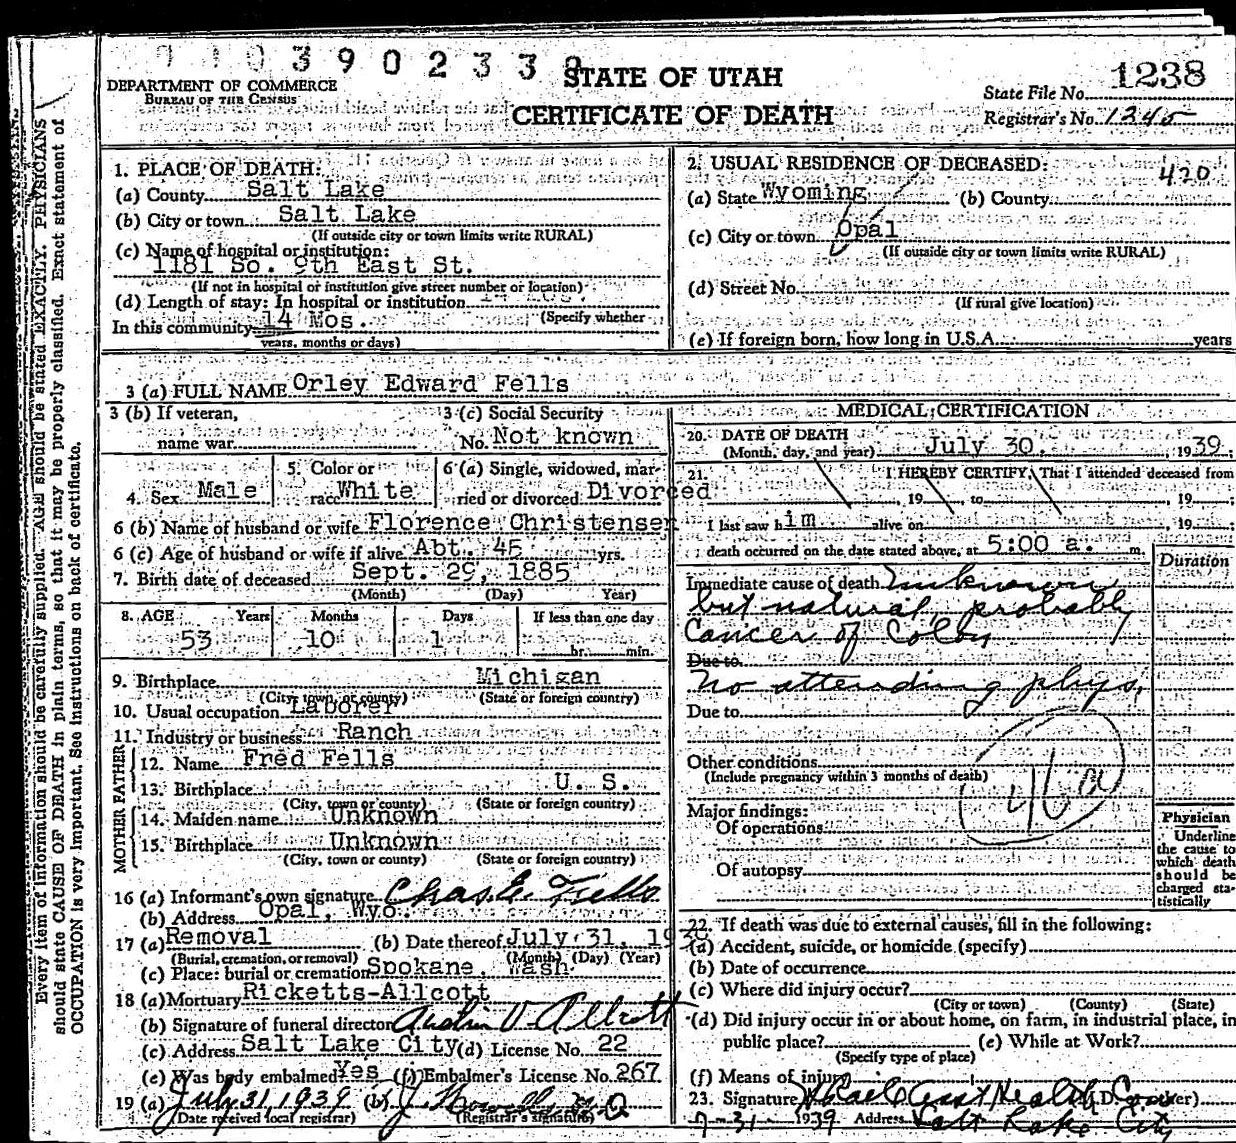 3 9 0 2 3 3
STATE OF UTAH
CERTIFICATE OF DEATH
DEPARTMENT OF COMMERCE
BUREAU OF THE CENSUS
State File No. 1238
Registrar's No. 1345
1. PLACE OF DEATH:
(a) County Salt Lake
(b) City or town Salt Lake
(If outside city or town limits write RURAL)
(c) Name of hospital or institution:
1181 So. 9th East St.
(If not in hospital or institution give street number or location)
(d) Length of stay: In hospital or institution
(Specify whether
In this community 14 Mos.
years, months or days)
2. USUAL RESIDENCE OF DECEASED:
420
(a) State Wyoming (b) County
(c) City or town Opal
(If outside city or town limits write RURAL)
(d) Street No.
(If rural give location)
(e) If foreign born, how long in U.S.A. years
3 (a) FULL NAME Orley Edward Fells
3 (b) If veteran,
name war
3 (c) Social Security
No. Not known
4. Sex Male
5. Color or
race White
6 (a) Single, widowed, mar-
ried or divorced Divorced
6 (b) Name of husband or wife Florence Christensen
6 (c) Age of husband or wife if alive Abt. 45 yrs.
7. Birth date of deceased Sept. 29, 1885
(Month) (Day) Year)
8. AGE Years Months Days If less than one day
53 10 1 hr. min.
9. Birthplace Michigan
(City, town, or county) (State or foreign country)
10. Usual occupation Laborer
11. Industry or business Ranch
FATHER
12. Name Fred Fells
13. Birthplace U. S.
(City, town or county) (State or foreign country)
MOTHER
14. Maiden name Unknown
15. Birthplace Unknown
(City, town or county) (State or foreign country)
16 (a) Informant's own signature Chas. E. Fells
(b) Address Opal, Wyo.
17 (a) Removal (b) Date thereof July 31, 1939
(Burial, cremation, or removal) (Month) (Day) (Year)
(c) Place: burial or cremation Spokane, Wash.
18 (a) Mortuary Ricketts-Allcott
(b) Signature of funeral director Austin V. Allcott
(c) Address Salt Lake City (d) License No. 22
(e) Was body embalmed? Yes (f) Embalmer's License No. 267
19 (a) July 31, 1939 (b) J.
Date received local registrar) (Registrar's signature)
MEDICAL CERTIFICATION
20. DATE OF DEATH
(Month, day, and year) July 30, 1939.
21. I HEREBY CERTIFY, That I attended deceased from
, 19 , to , 19 ;
I last saw him alive on , 19 ;
death occurred on the date stated above, at 5:00 a. m.
Duration
Immediate cause of death Unknown
but natural, probably
Cancer of Colon
Due to
No attending phys.
Due to
Other conditions
(Include pregnancy within 3 months of death)
46a
Major findings:
Of operations
Of autopsy
Physician
Underline
the cause to
which death
should be
charged sta-
tistically
22. If death was due to external causes, fill in the following:
(a) Accident, suicide, or homicide (specify)
(b) Date of occurrence
(c) Where did injury occur?
(City or town) (County) (State)
(d) Did injury occur in or about home, on farm, in industrial place, in
public place? (e) While at Work?
(Specify type of place)
(f) Means of injury
23. Signature Health
7-31- 1939 Address Salt Lake City
Every item of information should be carefully supplied. AGE should be stated EXACTLY. PHYSICIANS
should state CAUSE OF DEATH in plain terms, so that it may be properly classified. Exact statement of
OCCUPATION is very important. See instructions on back of certificate.